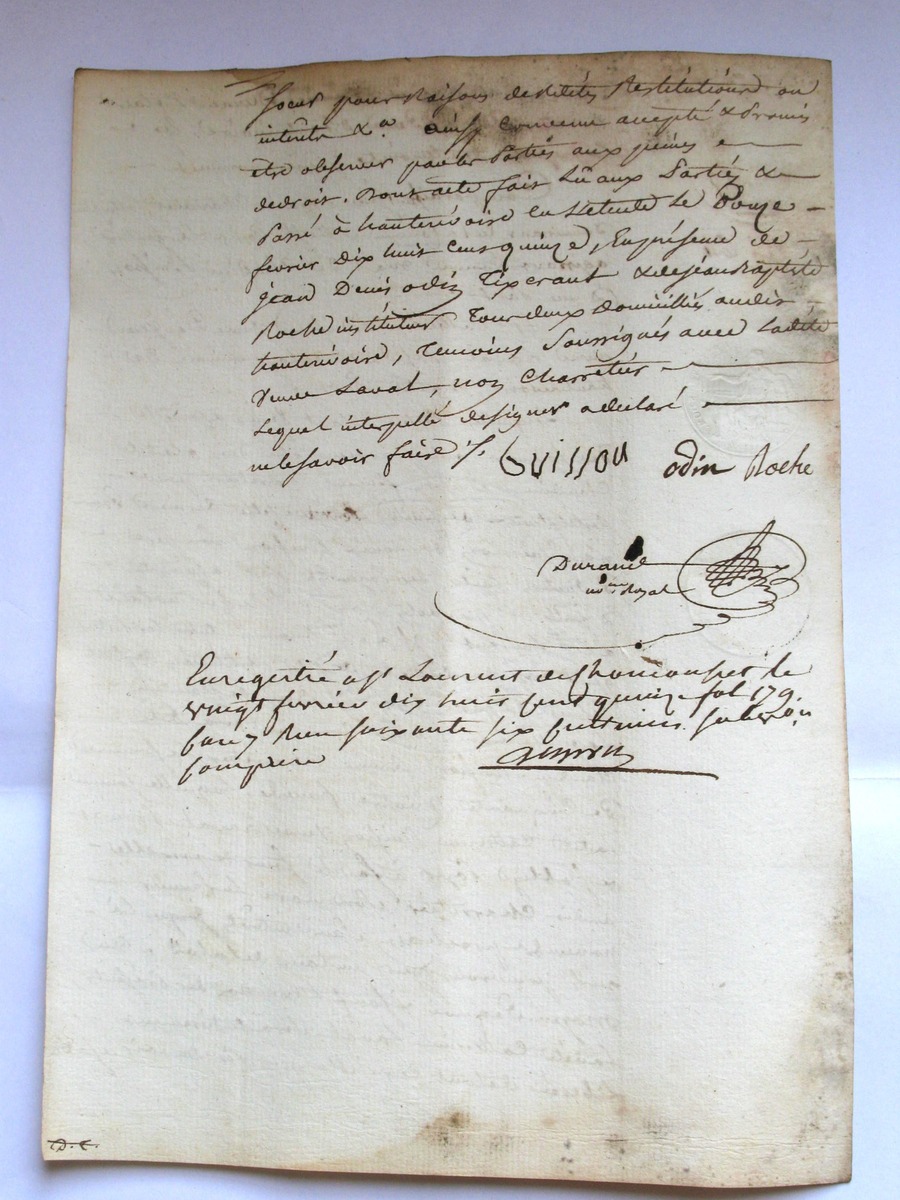 soeur pour raisons desdites Restitutions ou
intérêts &a ainsy convenu accepté & promis
être observer par les Parties aux peines
de droit. Dont acte fait Lû aux Parties &
Passé à hauterivoire en Létude Le Douze
fevrier dix huit cent quinze, En présence de
jean Denis odin Tixerant & de jean Baptiste
Roche instituteur Tous deux domicilliés audit
hauterivoire, Temoins Soussignés avec Ladite
Veuve Laval, non Charretier
Lequel interpellé de signer a déclaré
ne le savoir faire ./.
Guissou odin Roche
Durand
no.re Royal
Enregistré a St Laurent de Chamousset le
vingt fevrier dix huit cent quinze fol 179.
Case 7 Reçu soixante six centimes subvon
comprise
D.C.